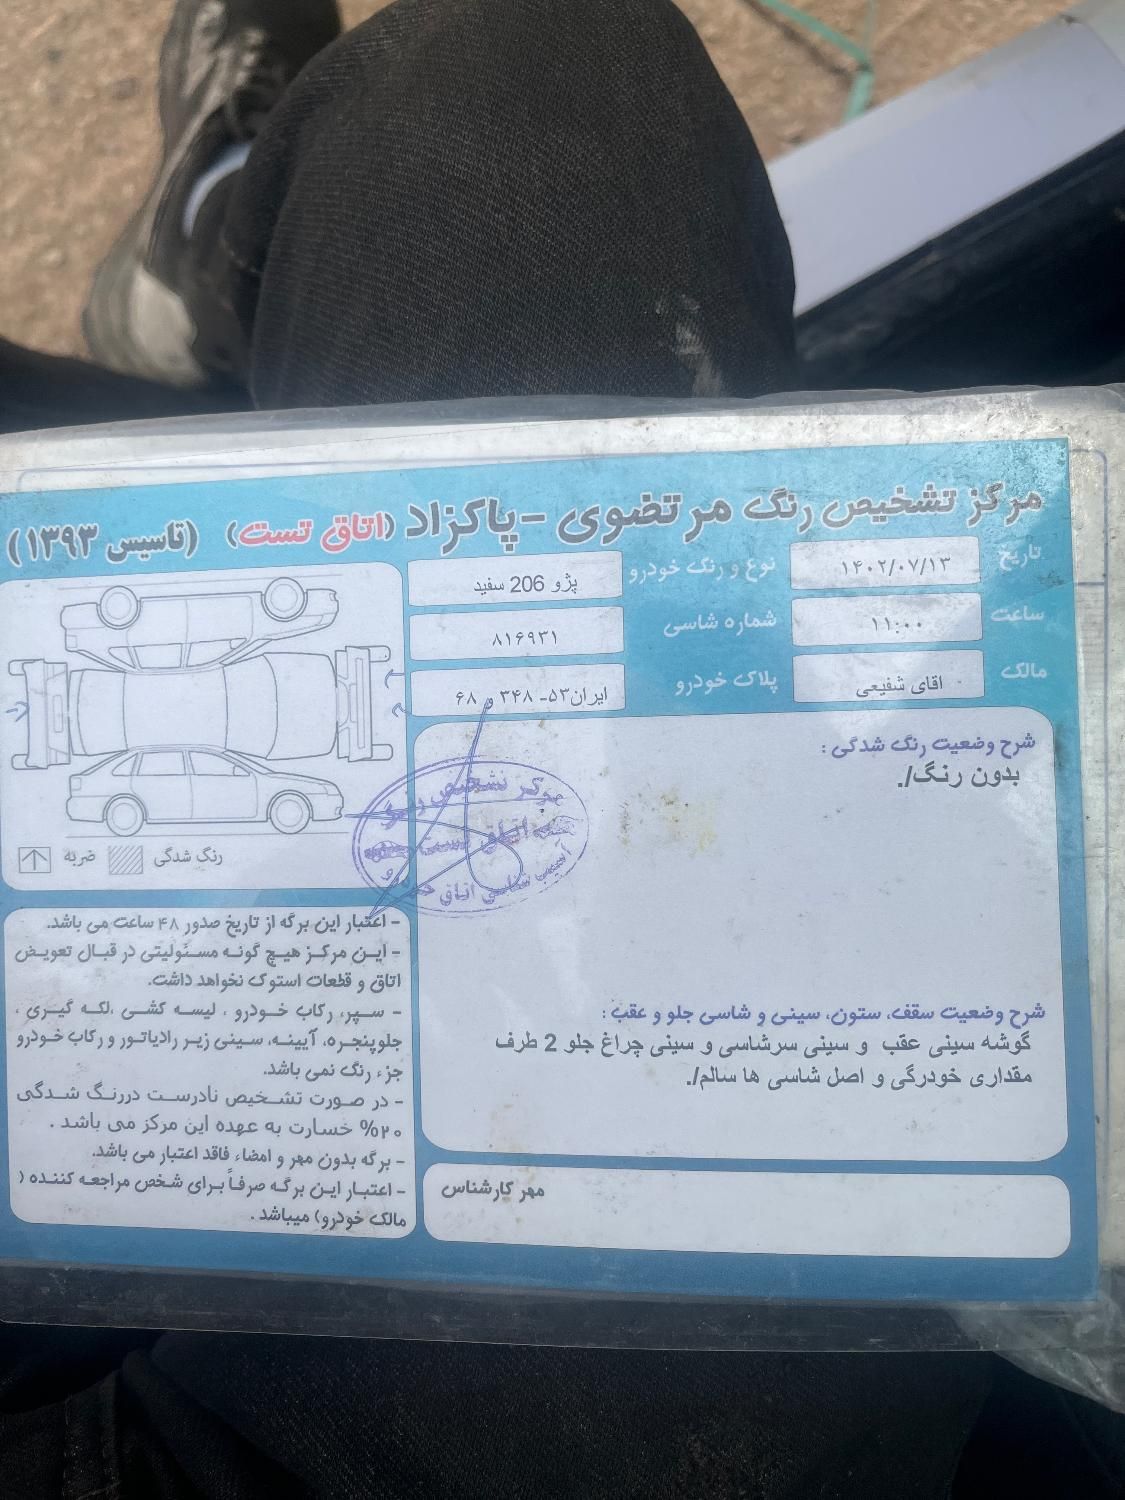 مرکز تشخیص رنگ مرتضوی - پاکزاد (اتاق تست) (تاسیس ۱۳۹۳)
تاریخ
۱۴۰۲/۰۷/۱۳
نوع و رنگ خودرو
پژو 206 سفید
ساعت
۱۱:۰۰
شماره شاسی
۸۱۶۹۳۱
مالک
اقای شفیعی
پلاک خودرو
ایران۵۳- ۳۴۸ و ۶۸
شرح وضعیت رنگ شدگی :
بدون رنگ/.
شرح وضعیت سقف، ستون، سینی و شاسی جلو و عقب :
گوشه سینی عقب و سینی سرشاسی و سینی چراغ جلو 2 طرف
مقداری خودرگی و اصل شاسی ها سالم/.
مهر کارشناس
رنگ شدگی
ضربه
مرکز تشخیص رنگ
اتاق تست
آسیب شناسی اتاق خودرو
- اعتبار این برگه از تاریخ صدور ۴۸ ساعت می باشد.
- این مرکز هیچ گونه مسئولیتی در قبال تعویض
اتاق و قطعات استوک نخواهد داشت.
- سپر، رکاب خودرو ، لیسه کشی ،لکه گیری ،
جلوپنجره، آیینه، سینی زیر رادیاتور و رکاب خودرو
جزء رنگ نمی باشد.
- در صورت تشخیص نادرست دررنگ شدگی
۲۰% خسارت به عهده این مرکز می باشد .
- برگه بدون مهر و امضاء فاقد اعتبار می باشد.
- اعتبار این برگه صرفاً برای شخص مراجعه کننده (
مالک خودرو) میباشد .